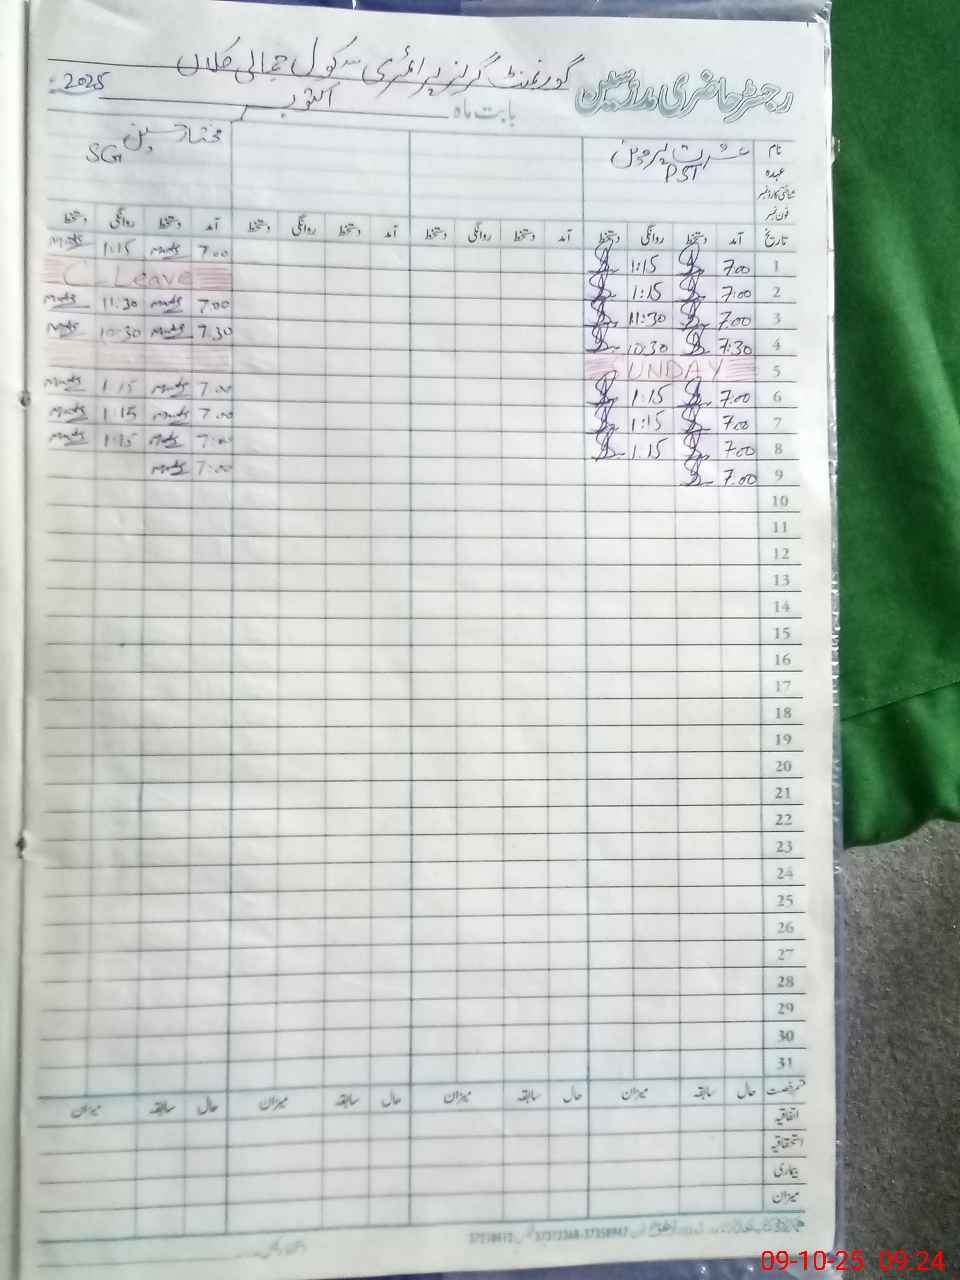 رجسٹر حاضری مدرسین گورنمنٹ گرلز پرائمری سکول جمالی کلاں
بابت ماہ اکتوبر 2025
نام عشرت پروین مختار حسین
عہدہ PST SG
فون نمبر
تاریخ آمد دستخط روانگی دستخط آمد دستخط روانگی دستخط آمد دستخط روانگی دستخط آمد دستخط روانگی دستخط
1 7:00 1:15 7:00 1:15
2 7:00 1:15 C-Leave
3 7:00 11:30 7:00 11:30
4 7:30 10:30 7:30 10:30
5 SUNDAY
6 7:00 1:15 7:00 1:15
7 7:00 1:15 7:00 1:15
8 7:00 1:15 7:00 1:15
9 7:00 7:00
10
11
12
13
14
15
16
17
18
19
20
21
22
23
24
25
26
27
28
29
30
31
قسم رخصت حال سابقہ میزان حال سابقہ میزان حال سابقہ میزان حال سابقہ میزان
اتفاقیہ
استحقاقیہ
بیماری
میزان
09-10-25 09:24